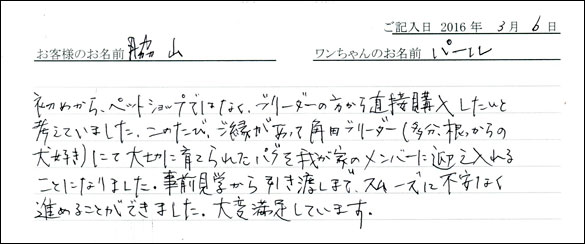 ご記入日 2016 年 3 月 6 日
お客様のお名前 脇山 ワンちゃんのお名前 パール
初めから、ペットショップではなく、ブリーダーの方から直接購入したいと
考えていました。このたび、ご縁があって角田ブリーダー(多分、根っからの
犬好き)にて大切に育てられたパグを我が家のメンバーに迎え入れる
ことになりました。事前見学から引き渡しまで、スムーズに不安なく
進めることができました。大変満足しています。